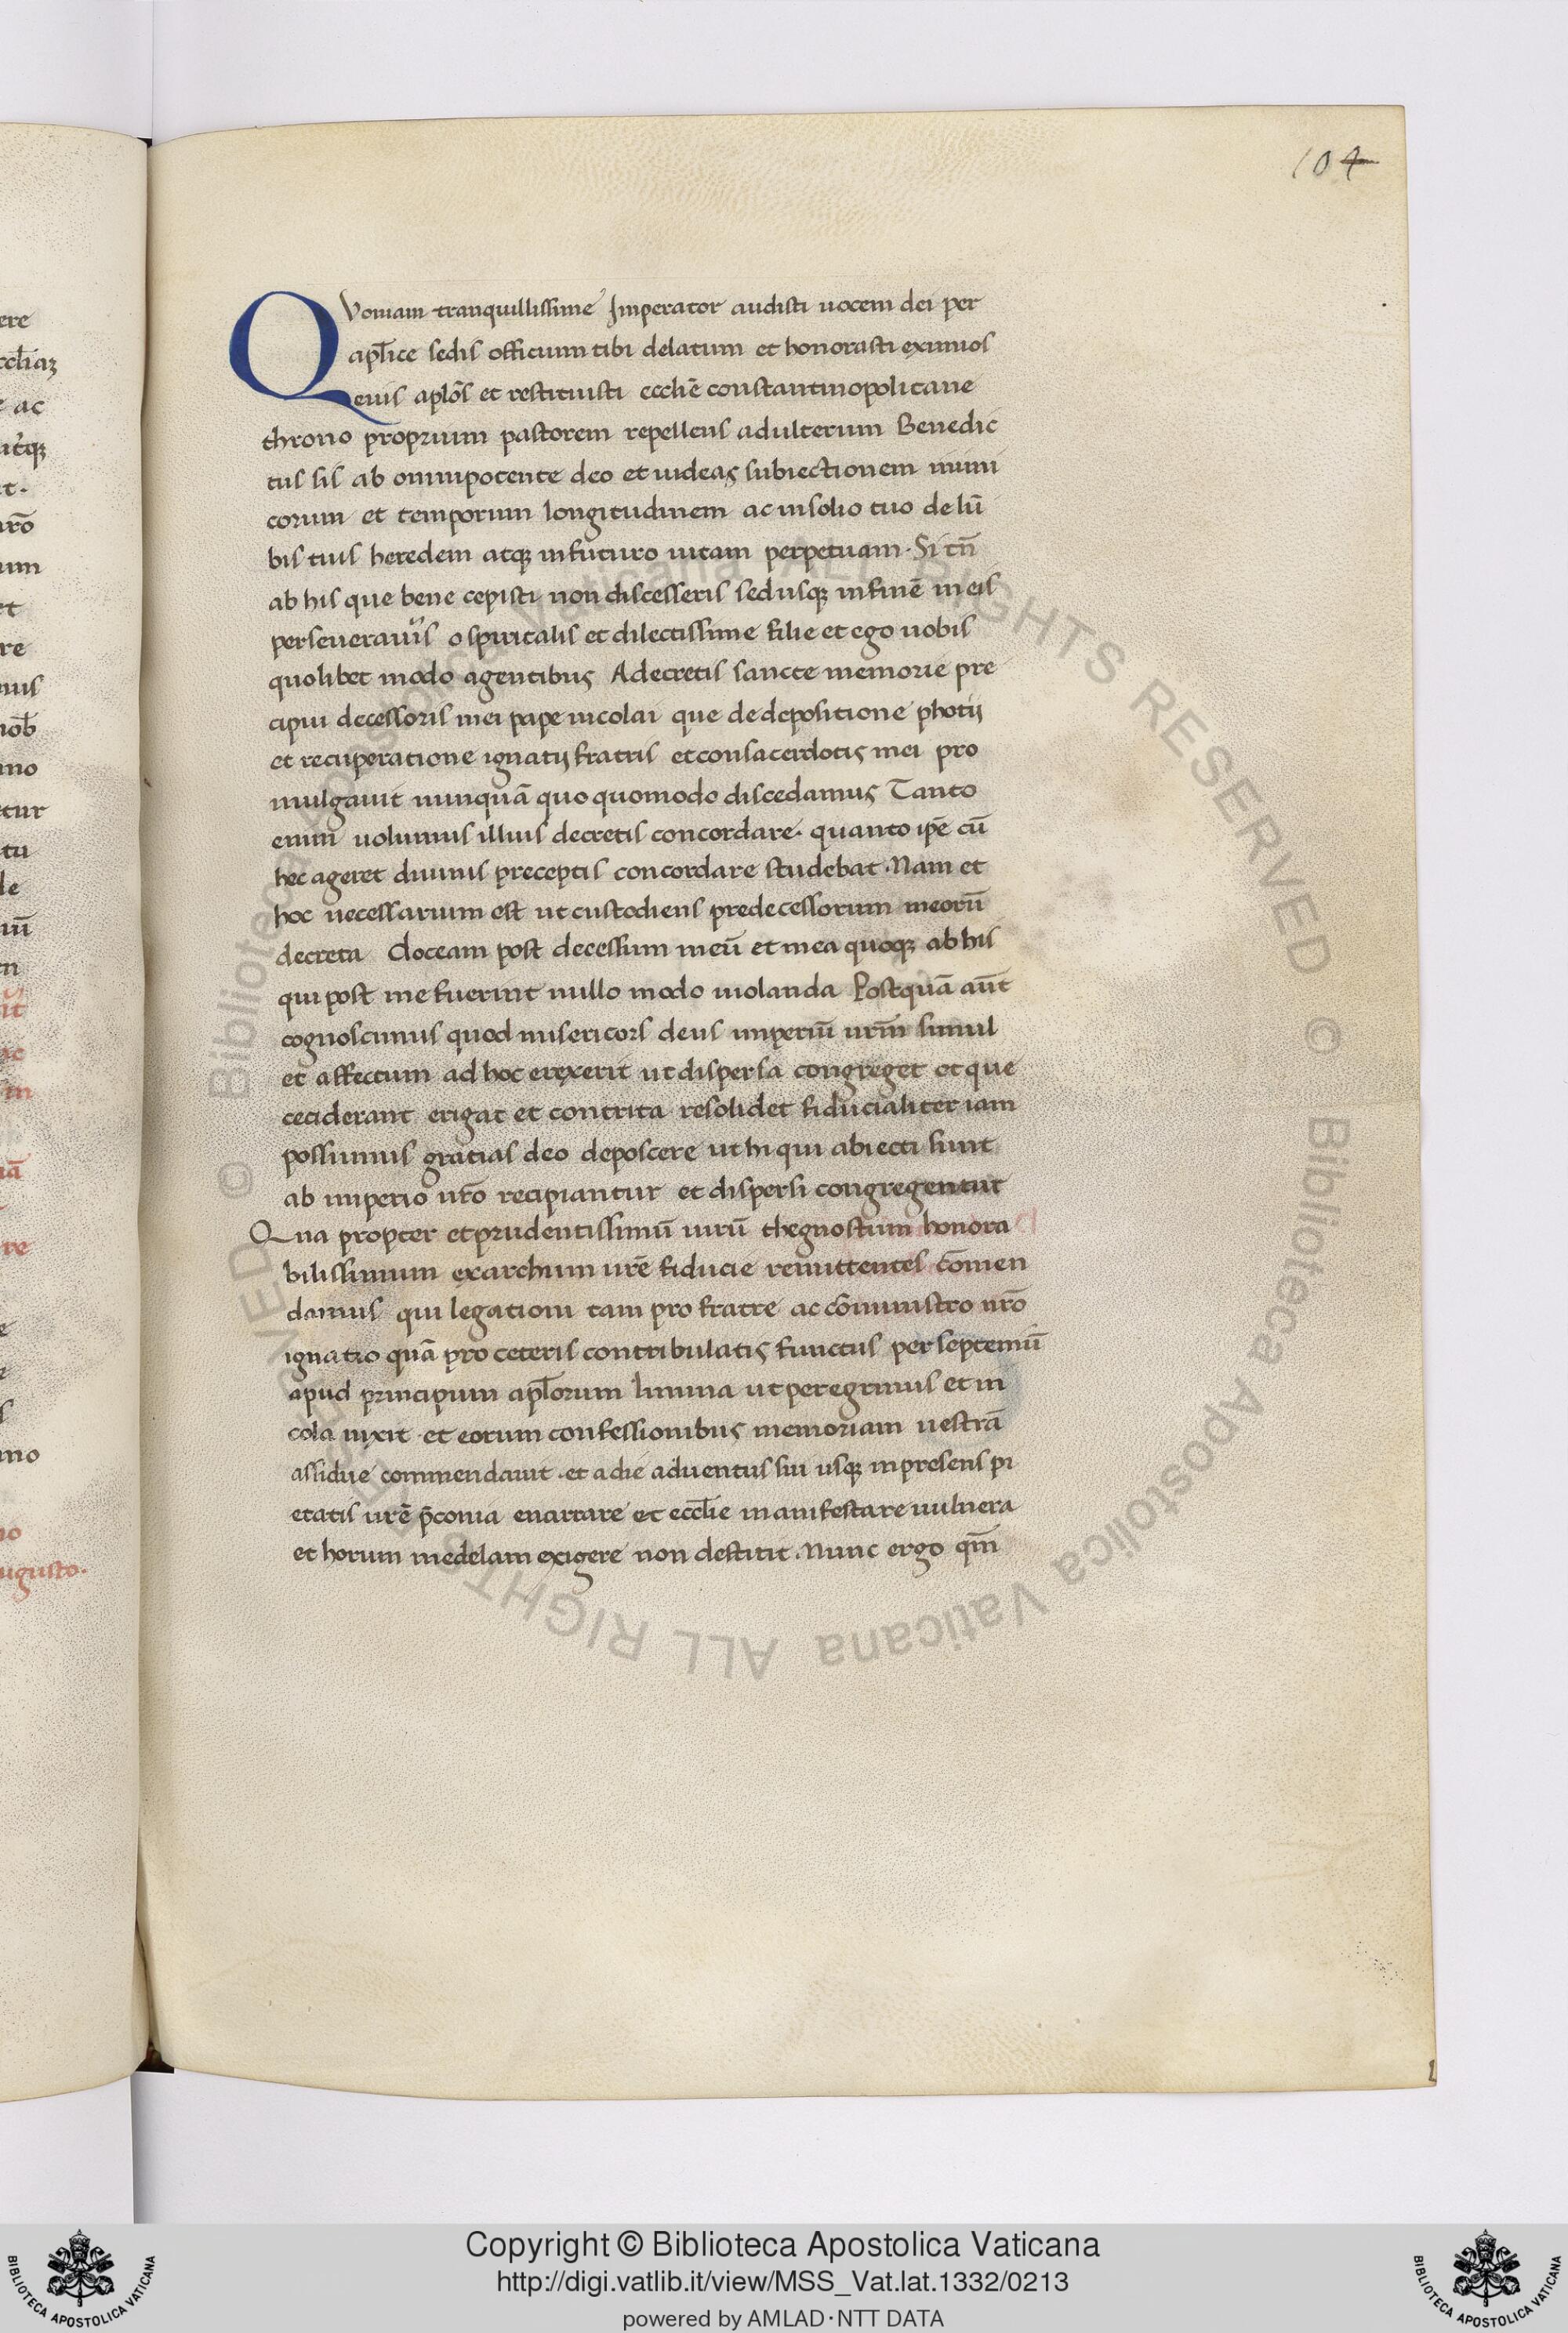 104
QVoniam tranquillissime Imperator audisti uocem dei per
apl̄ice sedis officium tibi delatum et honorasti eximios
eius aplōs et restituisti eccliē constantinopolitane
throno proprium pastorem repellens adulterum Benedic
tus sis ab omnipotente deo et uideas subiectionem inimi
corum et temporum longitudinem ac in solio tuo de lū
bis tuis heredem atq; in futuro uitam perpetuam. Si tn̄
ab his que bene cepisti non discesseris sed usq; in finē in eis
perseueraueris o spiritalis et dilectissime filie et ego uobis
quolibet modo agentibus A decretis sancte memorie pre
cipui decessoris mei pape nicolai que de depositione photij
et recuperatione ignatij fratris et consacerdotis mei pro
mulgauit nunquā quo quomodo discedamus Tanto
enim uolumus illius decretis concordare. quanto ipē cū
hec ageret diuinis preceptis concordare studebat. Nam et
hoc necessarium est ut custodiens predecessorum meorū
decreta doceam post decessum meū et mea quoq; ab his
qui post me fuerint nullo modo uiolanda Postquā aūt
cognoscimus quod misericors deus imperiū urm̄ simul
et affectum ad hoc erexerit ut dispersa congreget et que
ceciderant erigat et contrita resolidet fiducialiter iam
possumus gratias deo deposcere ut hi qui abiecti sunt
ab imperio urō recipiantur et dispersi congregentur
Qua propter et prudentissimū uirū thegnostum honora
bilissimum exarchum urē fiducie remittentes cōmen
damus qui legationi tam pro fratre ac cōministro nrō
ignatio quā pro ceteris contribulatis functus per septemiū
apud principum apl̄orum limina ut peregrinus et in
cola uixit. et eorum confessionibus memoriam uestrā
assidue commendauit. et a die aduentus sui usq; in presens pi
etatis urē p̄conia enarrare et eccl̄ie manifestare uulnera
et horum medelam exigere non destitit. Nunc ergo qm̄
© Biblioteca Apostolica Vaticana ALL RIGHTS RESERVED © Biblioteca Apostolica Vaticana ALL RIGHTS RESERVED
Copyright © Biblioteca Apostolica Vaticana
http://digi.vatlib.it/view/MSS_Vat.lat.1332/0213
powered by AMLAD·NTT DATA
BIBLIOTECA APOSTOLICA VATICANA
BIBLIOTECA APOSTOLICA VATICANA